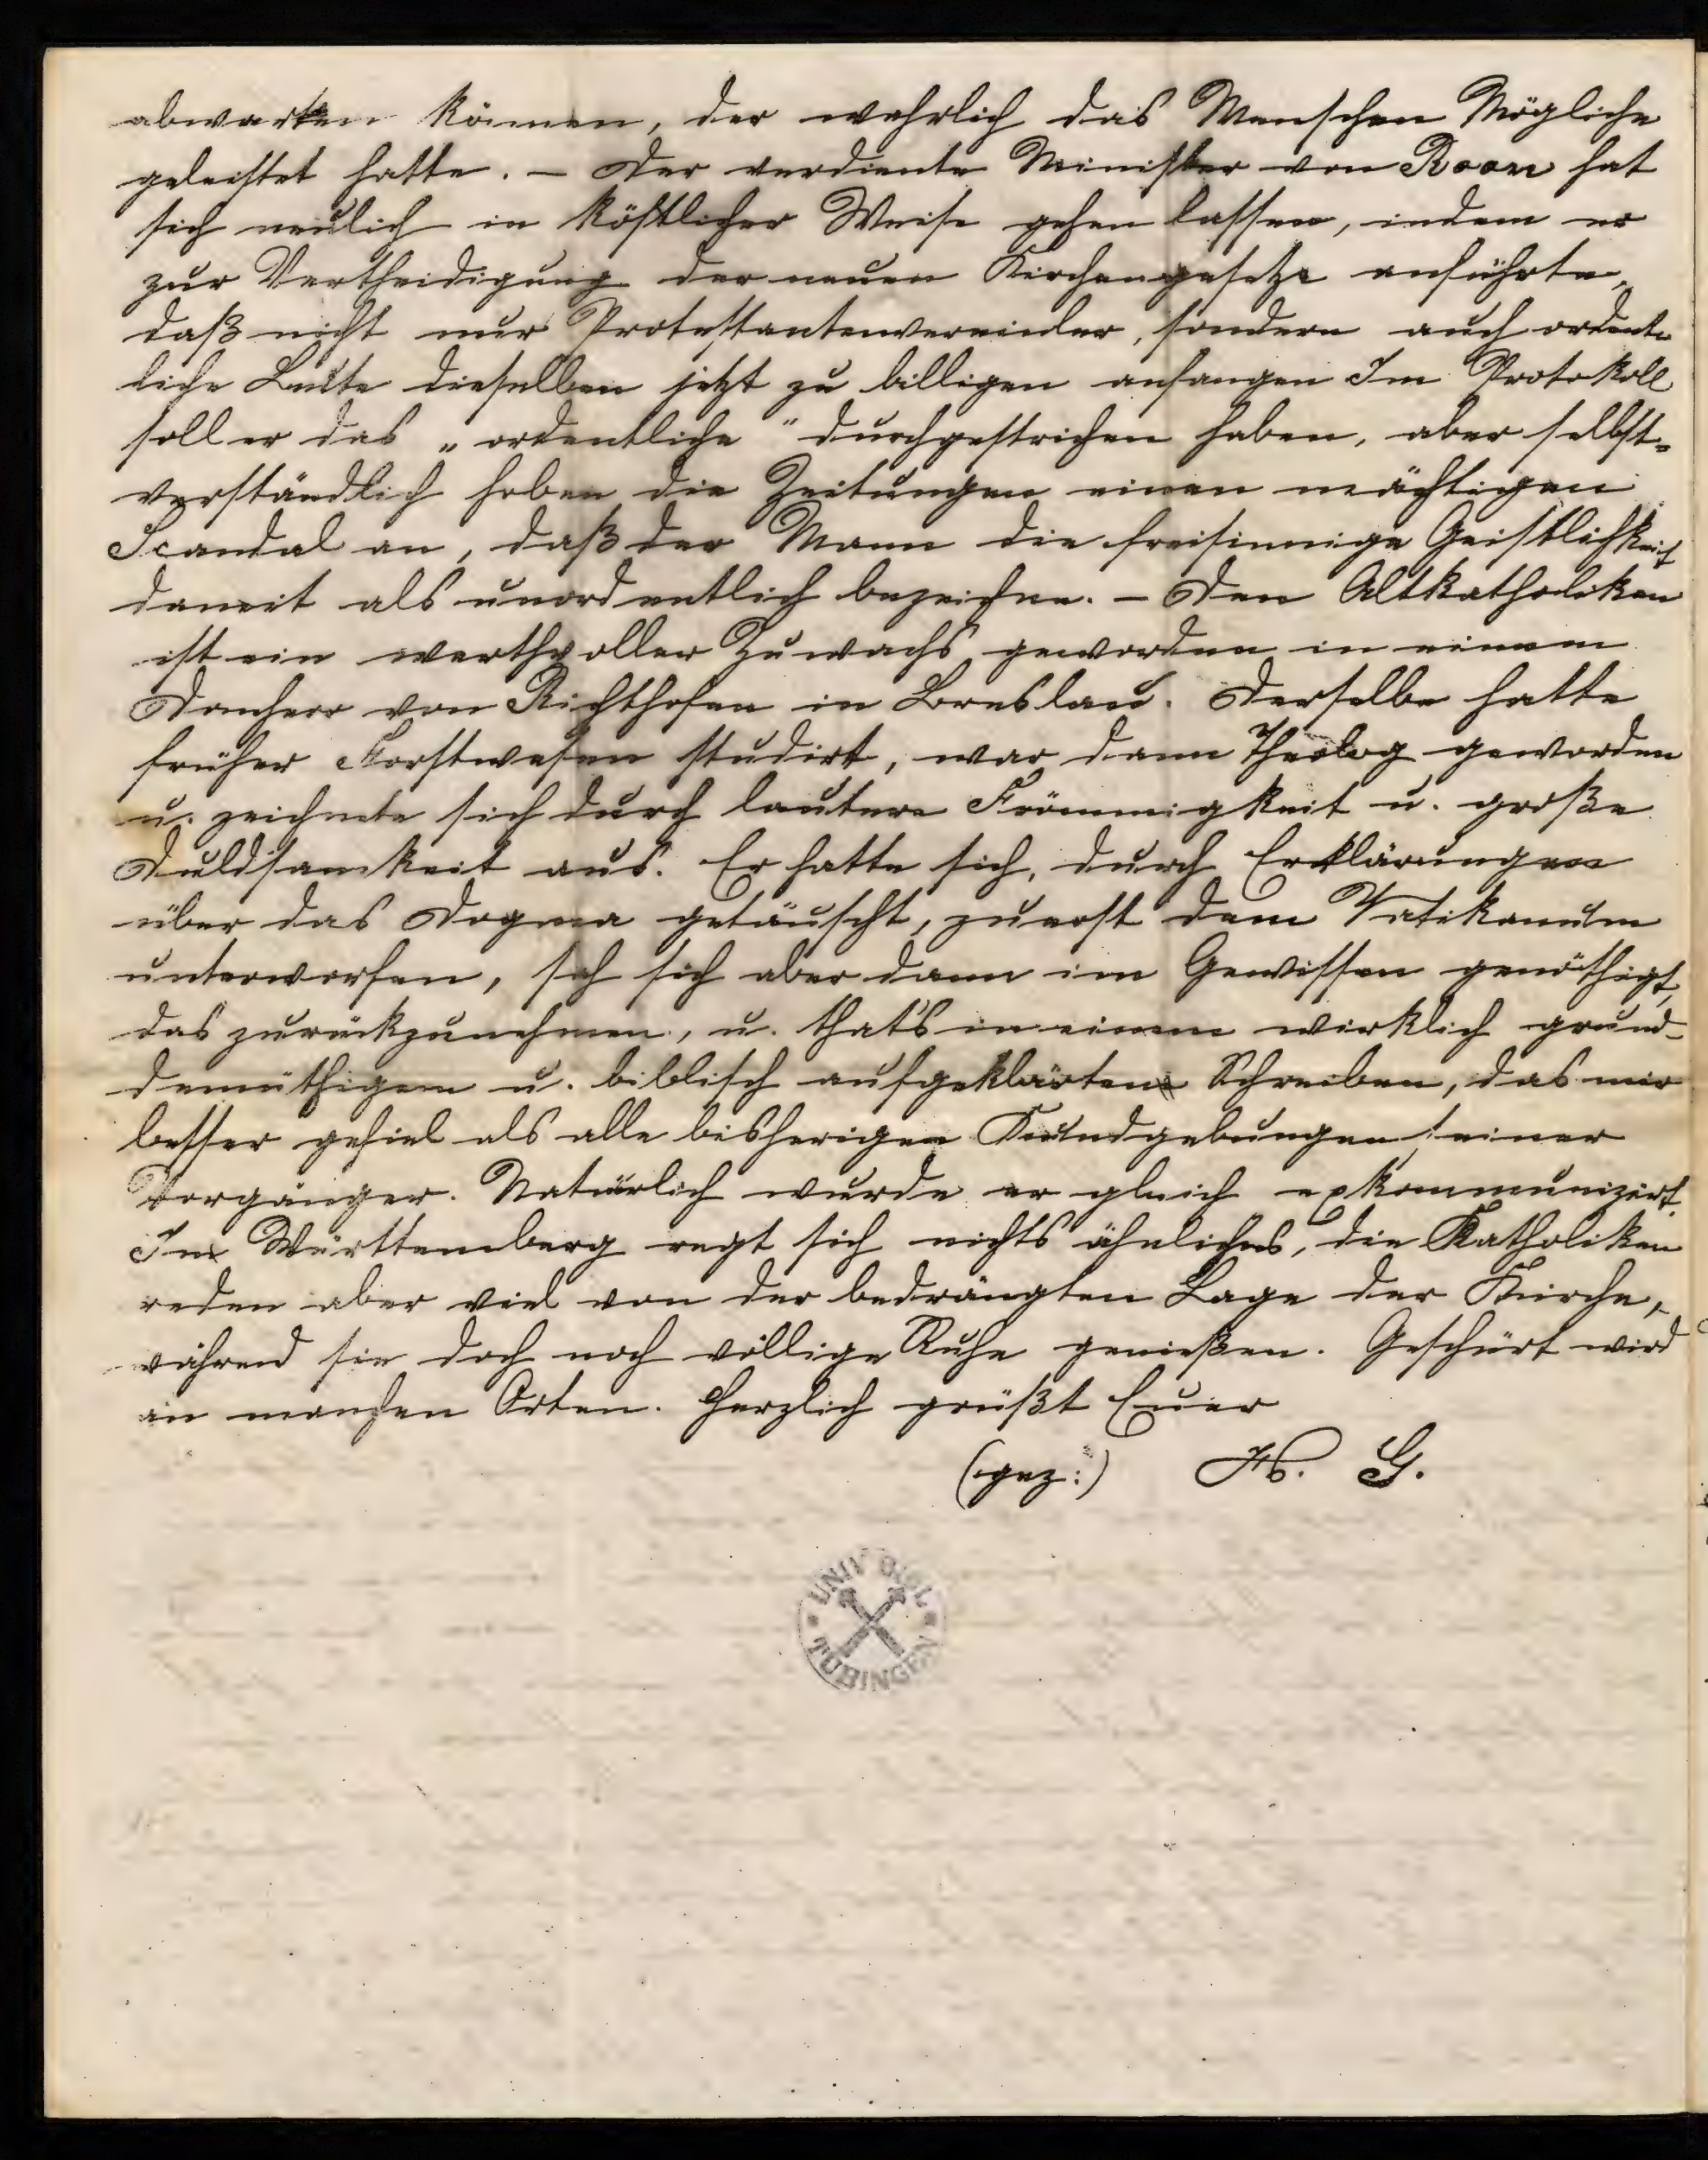 abwarten können, der wahrlich das Menschen Mögliche
geleistet hatte. – Der verdiente Minister von Roon hat
sich neulich in köstlicher Weise gehen lassen, indem er
zur Vertheidigung der neuen Kirchengesetze anführte,
daß nicht nur Protestantenvereinler, sondern auch ordent-
liche Leute dieselben jetzt zu billigen anfangen Im Protokoll
soll er das „ordentliche" durchgestrichen haben, aber selbst-
verständlich hoben die Zeitungen einen mächtigen
Scandal an, daß der Mann die freisinnige Geistlichkeit
damit als unordentlich bezeichne. – Den Altkatholiken
ist ein werthvoller Zuwachs geworden in einem
Domherr von Richthofen in Breslau. Derselbe hatte
früher Forstwesen studirt, war dann Theolog geworden
u. zeichnete sich durch lautere Frömmigkeit u. große
Duldsamkeit aus. Er hatte sich, durch Erklärungen
über das Dogma getäuscht, zuerst dem Vatikanum
unterworfen, sah sich aber dann im Gewissen genöthigt,
das zurückzunehmen, u. that's in einem wirklich grund-
demüthigem u. biblisch aufgeklärten Schreiben, das mir
besser gefiel als alle bisherigen Kundgebungen seiner
Vorgänger. Natürlich wurde er gleich exkommunizirt.
In Württemberg regt sich nichts ähnliches, die Katholiken
reden aber viel von der bedrängten Lage der Kirche,
während sie doch noch völlige Ruhe genießen. Geschürt wird
an manchen Orten. Herzlich grüßt Euer
(gez:) H. G.
UNIV BIBL
TÜBINGEN